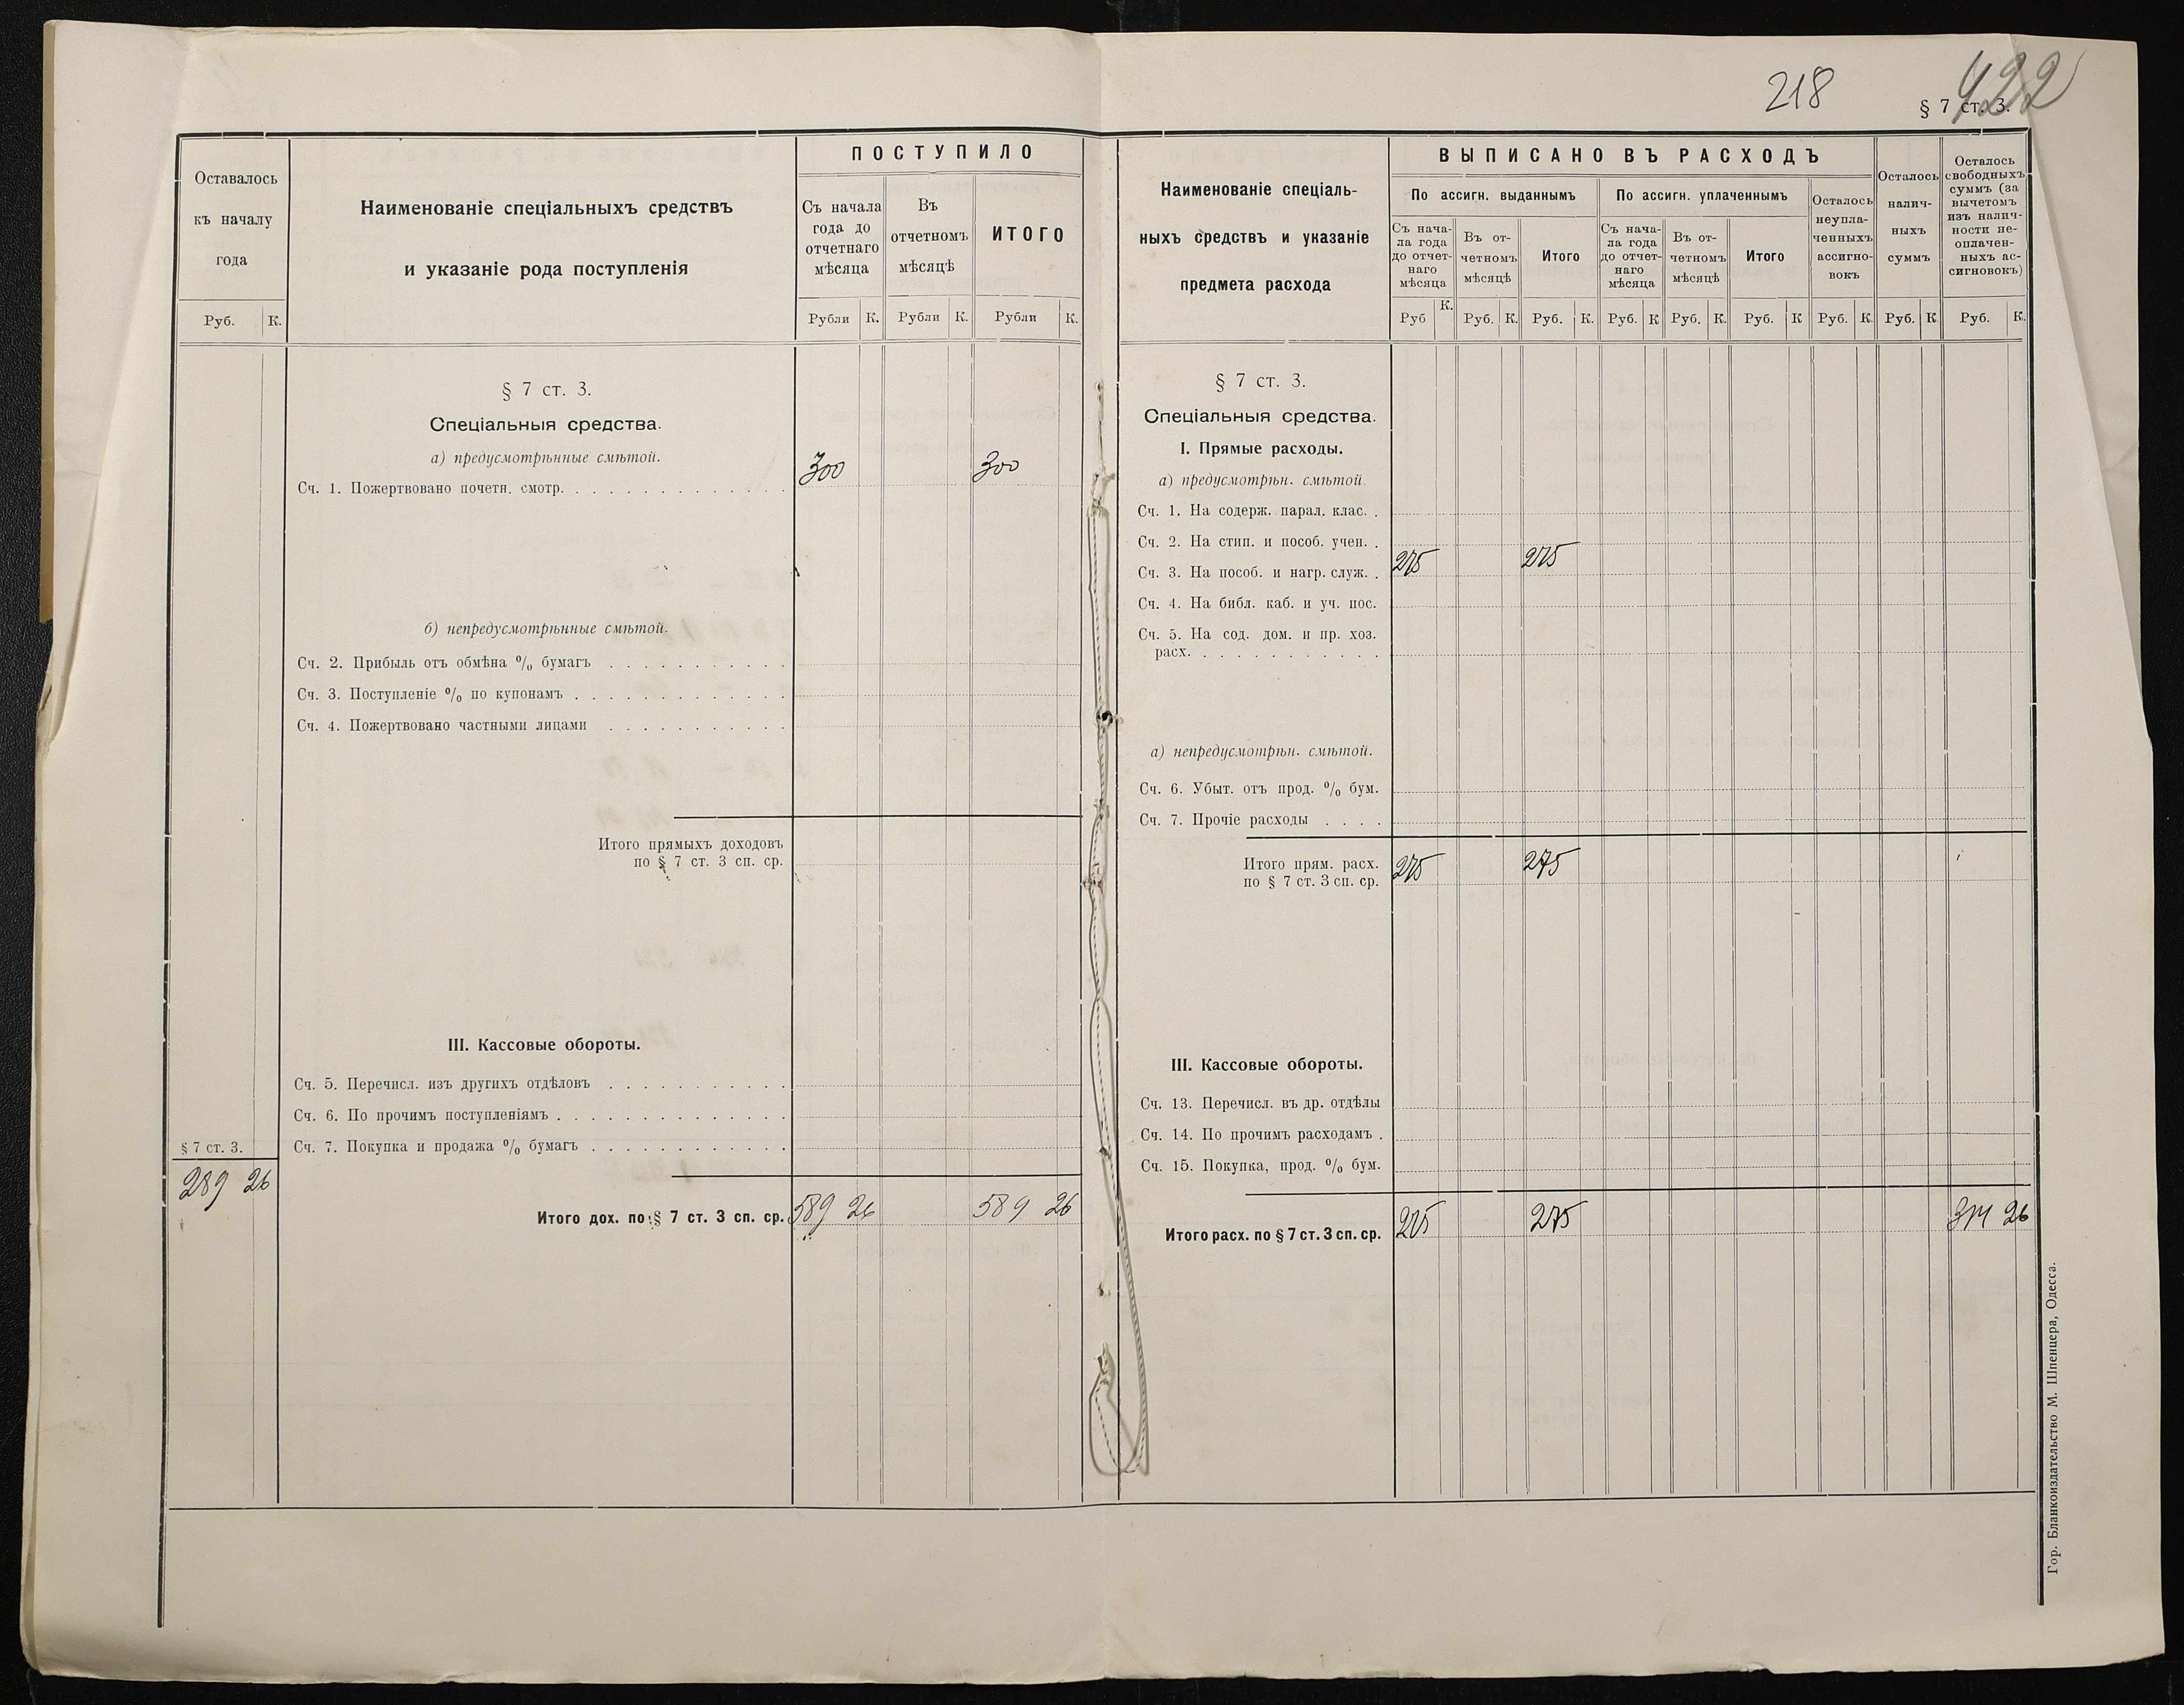 218
422
§ 7 ст. 3.
Оставалось
къ началу
года
Руб. К.
Наименованіе спеціальныхъ средствъ
и указаніе рода поступленія
ПОСТУПИЛО
Съ начала
года до
отчетнаго
мѣсяца
Въ
отчетномъ
мѣсяцѣ
ИТОГО
Рубли К. Рубли К. Рубли К.
§ 7 ст. 3.
Спеціальныя средства.
а) предусмотрѣнные смѣтой.
Сч. 1. Пожертвовано почетн. смотр. 300 300
б) непредусмотрѣнные смѣтой.
Сч. 2. Прибыль отъ обмѣна % бумагъ
Сч. 3. Поступленіе % по купонамъ
Сч. 4. Пожертвовано частными лицами
Итого прямыхъ доходовъ
по § 7 ст. 3 сп. ср.
III. Кассовые обороты.
Сч. 5. Перечисл. изъ другихъ отдѣловъ
Сч. 6. По прочимъ поступленіямъ
§ 7 ст. 3. Сч. 7. Покупка и продажа % бумагъ
289 26
Итого дох. по § 7 ст. 3 сп. ср. 589 26 589 26
Наименованіе спеціаль-
ныхъ средствъ и указаніе
предмета расхода
ВЫПИСАНО ВЪ РАСХОДЪ
По ассигн. выданнымъ
Съ нача-
ла года
до отчет-
наго
мѣсяца
Въ от-
четномъ
мѣсяцѣ
Итого
По ассигн. уплаченнымъ
Съ нача-
ла года
до отчет-
наго
мѣсяца
Въ от-
четномъ
мѣсяцѣ
Итого
Осталось
неупла-
ченныхъ
ассигно-
вокъ
Осталось
налич-
ныхъ
суммъ
Осталось
свободныхъ
суммъ (за
вычетомъ
изъ налич-
ности не-
оплачен-
ныхъ ас-
сигновокъ)
Руб К. Руб. К. Руб. К. Руб. К Руб. К. Руб. К Руб. К. Руб. К Руб. К.
§ 7 ст. 3.
Спеціальныя средства.
I. Прямые расходы.
а) предусмотрѣн. смѣтой.
Сч. 1. На содерж. парал. клас.
Сч. 2. На стип. и пособ. учен.
Сч. 3. На пособ. и нагр. служ. 275 275
Сч. 4. На библ. каб. и уч. пос.
Сч. 5. На сод. дом. и пр. хоз.
расх.
а) непредусмотрѣн. смѣтой.
Сч. 6. Убыт. отъ прод. % бум.
Сч. 7. Прочіе расходы
Итого прям. расх.
по § 7 ст. 3 сп. ср. 275 275
III. Кассовые обороты.
Сч. 13. Перечисл. въ др. отдѣлы
Сч. 14. По прочимъ расходамъ
Сч. 15. Покупка, прод. % бум.
Итого расх. по § 7 ст. 3 сп. ср. 275 275 314 26
Гор. Бланкоиздательство М. Шпенцера, Одесса.